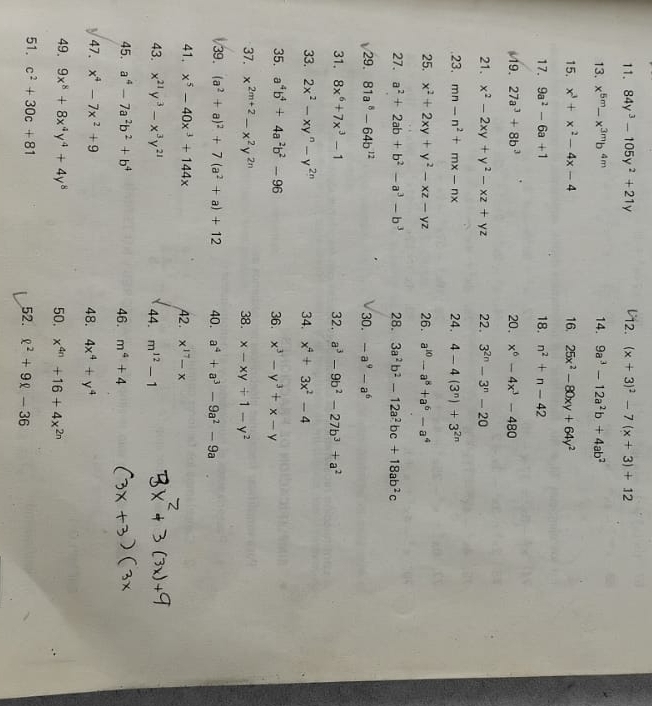 11. 84y³ – 105y² + 21y
12. (x + 3)² – 7 (x + 3) + 12
13. x⁵ᵐ – x³ᵐb⁴ᵐ
14. 9a³ – 12a²b + 4ab²
15. x³ + x² – 4x – 4
16. 25x² – 80xy + 64y²
17. 9a² – 6a + 1
18. n² + n – 42
19. 27a³ + 8b³
20. x⁶ – 4x³ – 480
21. x² – 2xy + y² – xz + yz
22. 3²ⁿ – 3ⁿ – 20
23. mn – n² + mx – nx
24. 4 – 4 (3ⁿ) + 3²ⁿ
25. x² + 2xy + y² – xz – yz
26. a¹⁰ – a⁸ + a⁶ – a⁴
27. a² + 2ab + b² – a³ – b³
28. 3a²b² – 12a²bc + 18ab²c
29. 81a⁸ – 64b¹²
30. – a⁹ – a⁶
31. 8x⁶ + 7x³ – 1
32. a³ – 9b² – 27b³ + a²
33. 2x² – xyⁿ – y²ⁿ
34. x⁴ + 3x² – 4
35. a⁴b⁴ + 4a²b² – 96
36. x³ – y³ + x – y
37. x²ᵐ⁺² – x²y²ⁿ
38. x – xy + 1 – y²
39. (a² + a)² + 7 (a² + a) + 12
40. a⁴ + a³ – 9a² – 9a
41. x⁵ – 40x³ + 144x
42. x¹⁷ – x
43. x²¹y³ – x³y²¹
44. m¹² – 1
45. a⁴ – 7a²b² + b⁴
46. m⁴ + 4
47. x⁴ – 7x² + 9
48. 4x⁴ + y⁴
49. 9x⁸ + 8x⁴y⁴ + 4y⁸
50. x⁴ⁿ + 16 + 4x²ⁿ
51. c² + 30c + 81
52. ℓ² + 9ℓ – 36
3x² + 3 (3x) + 9
(3x + 3) (3x